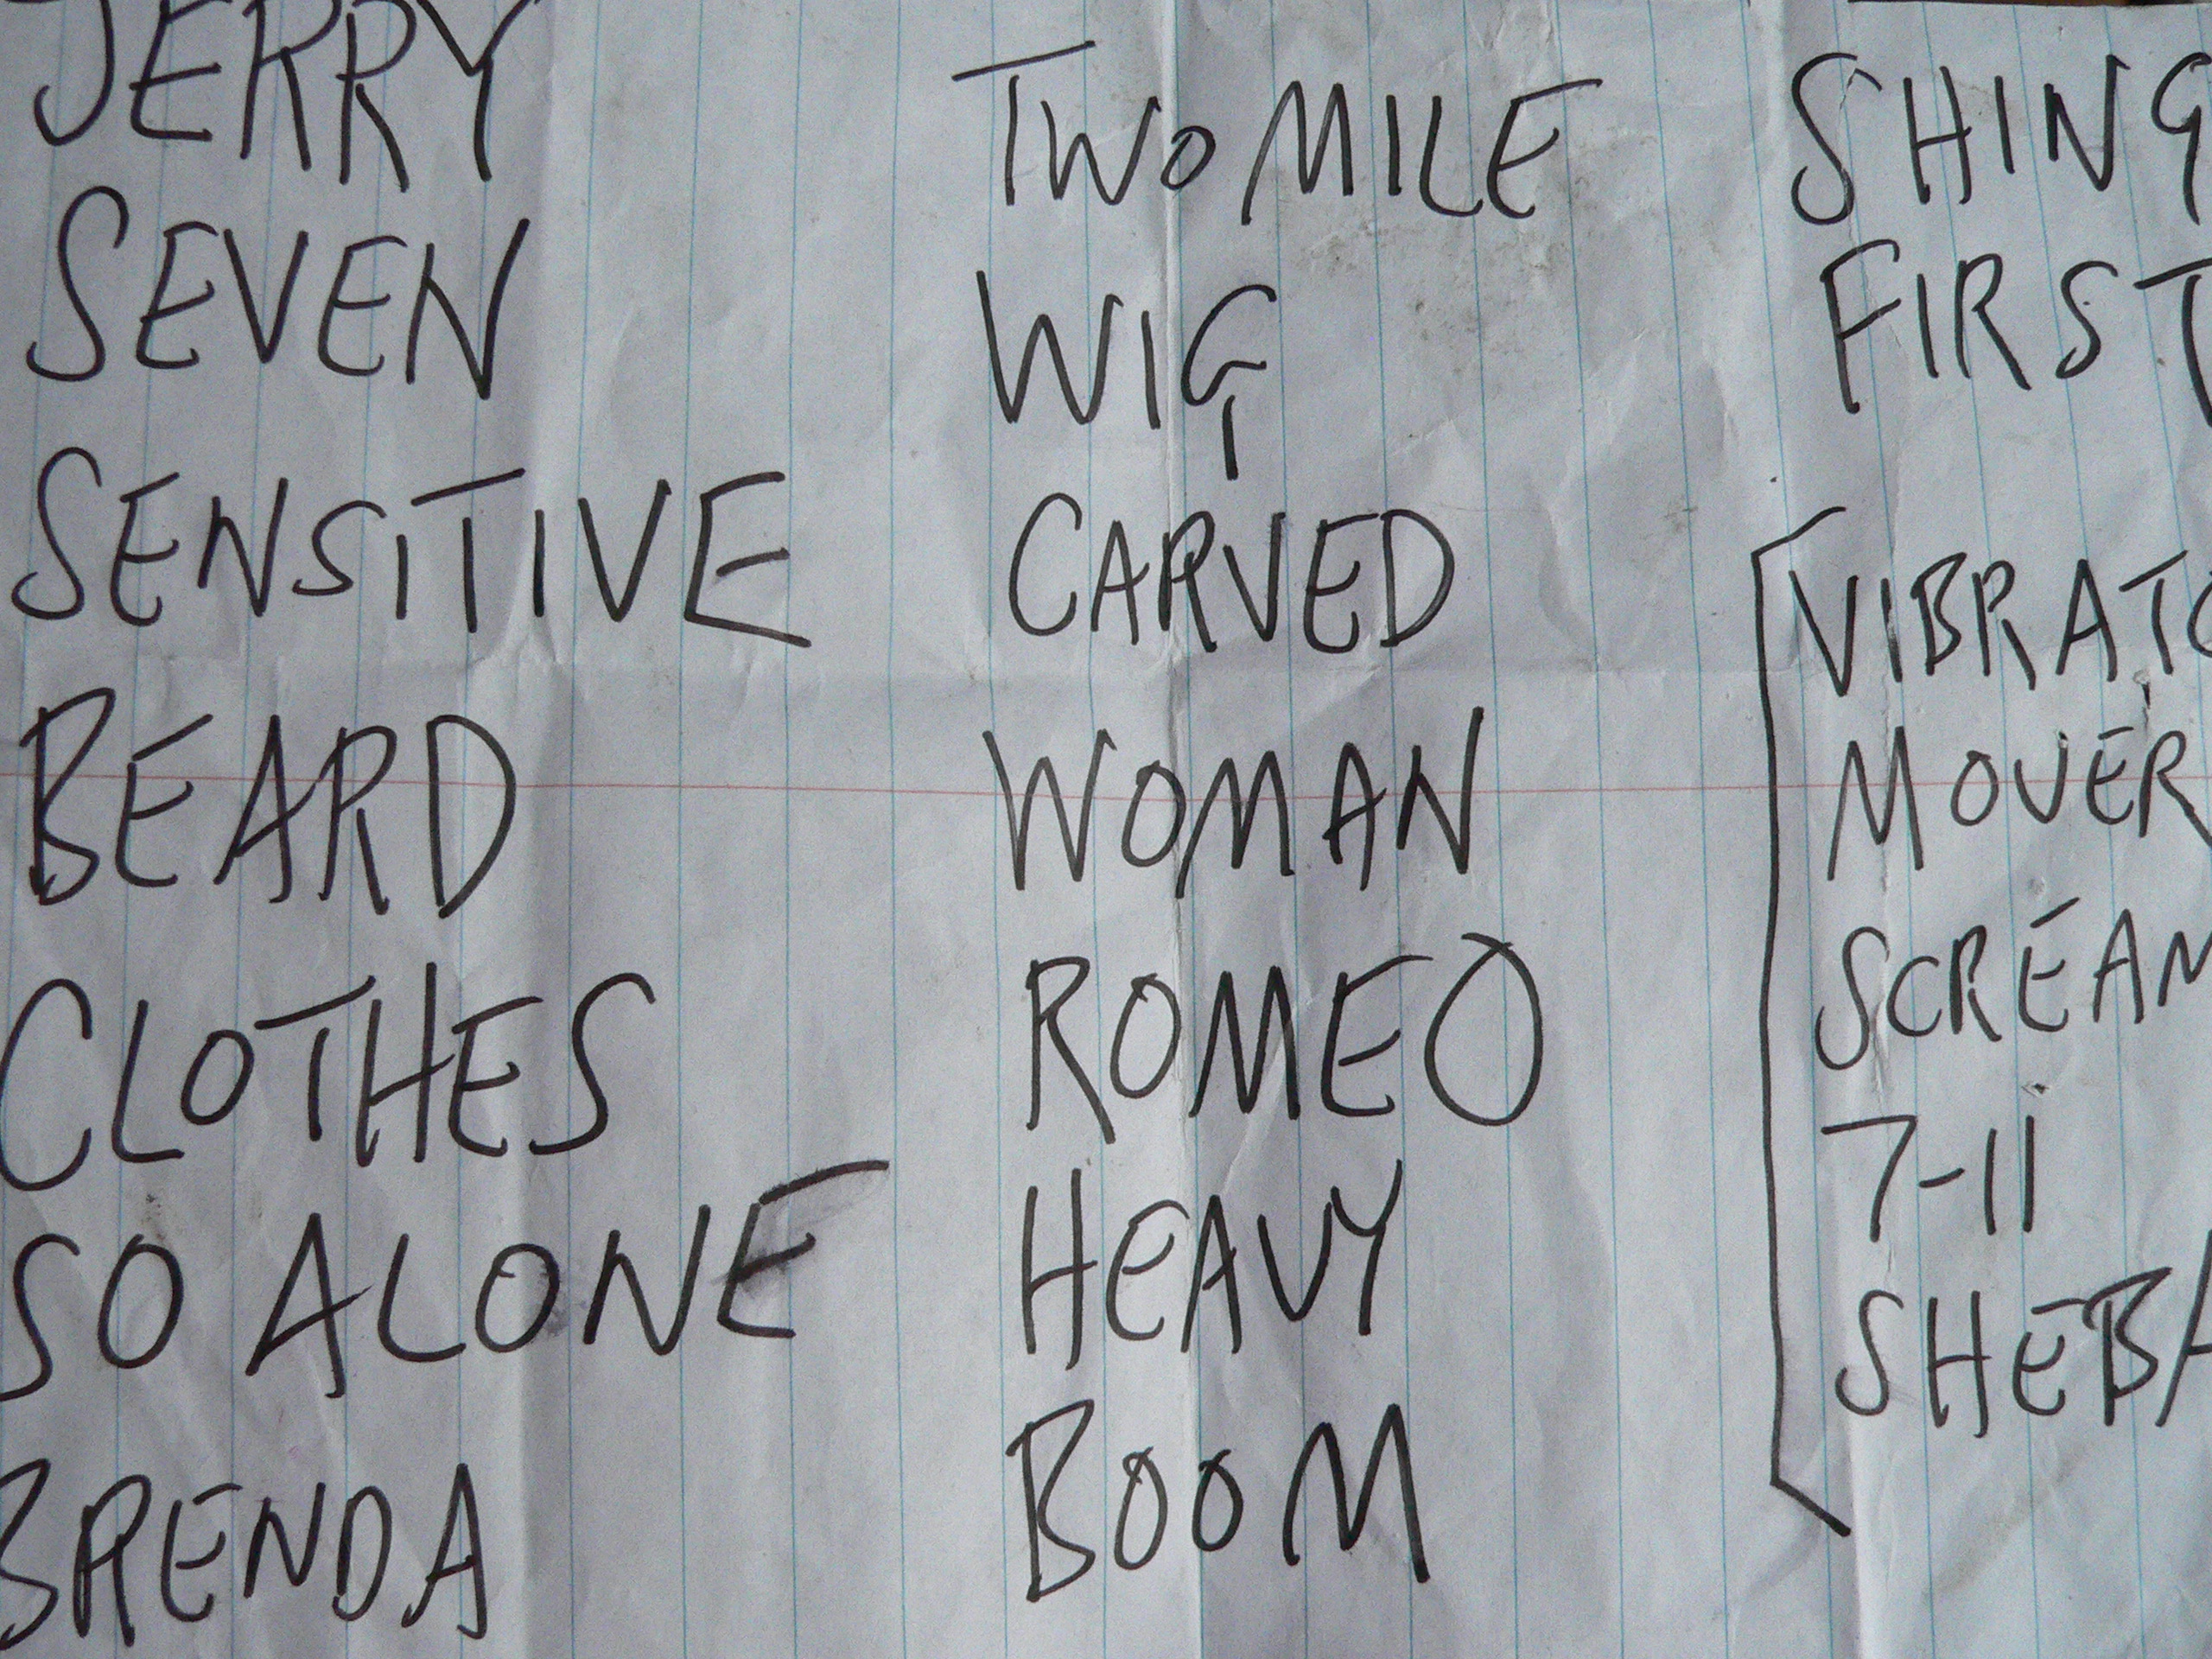 JERRY
SEVEN
SENSITIVE
BEARD
CLOTHES
SO ALONE
BRENDA
TWO MILE
WIG
CARVED
WOMAN
ROMEO
HEAVY
BOOM
SHING
FIRST
VIBRATO
MOVER
SCREAM
7-11
SHEBA